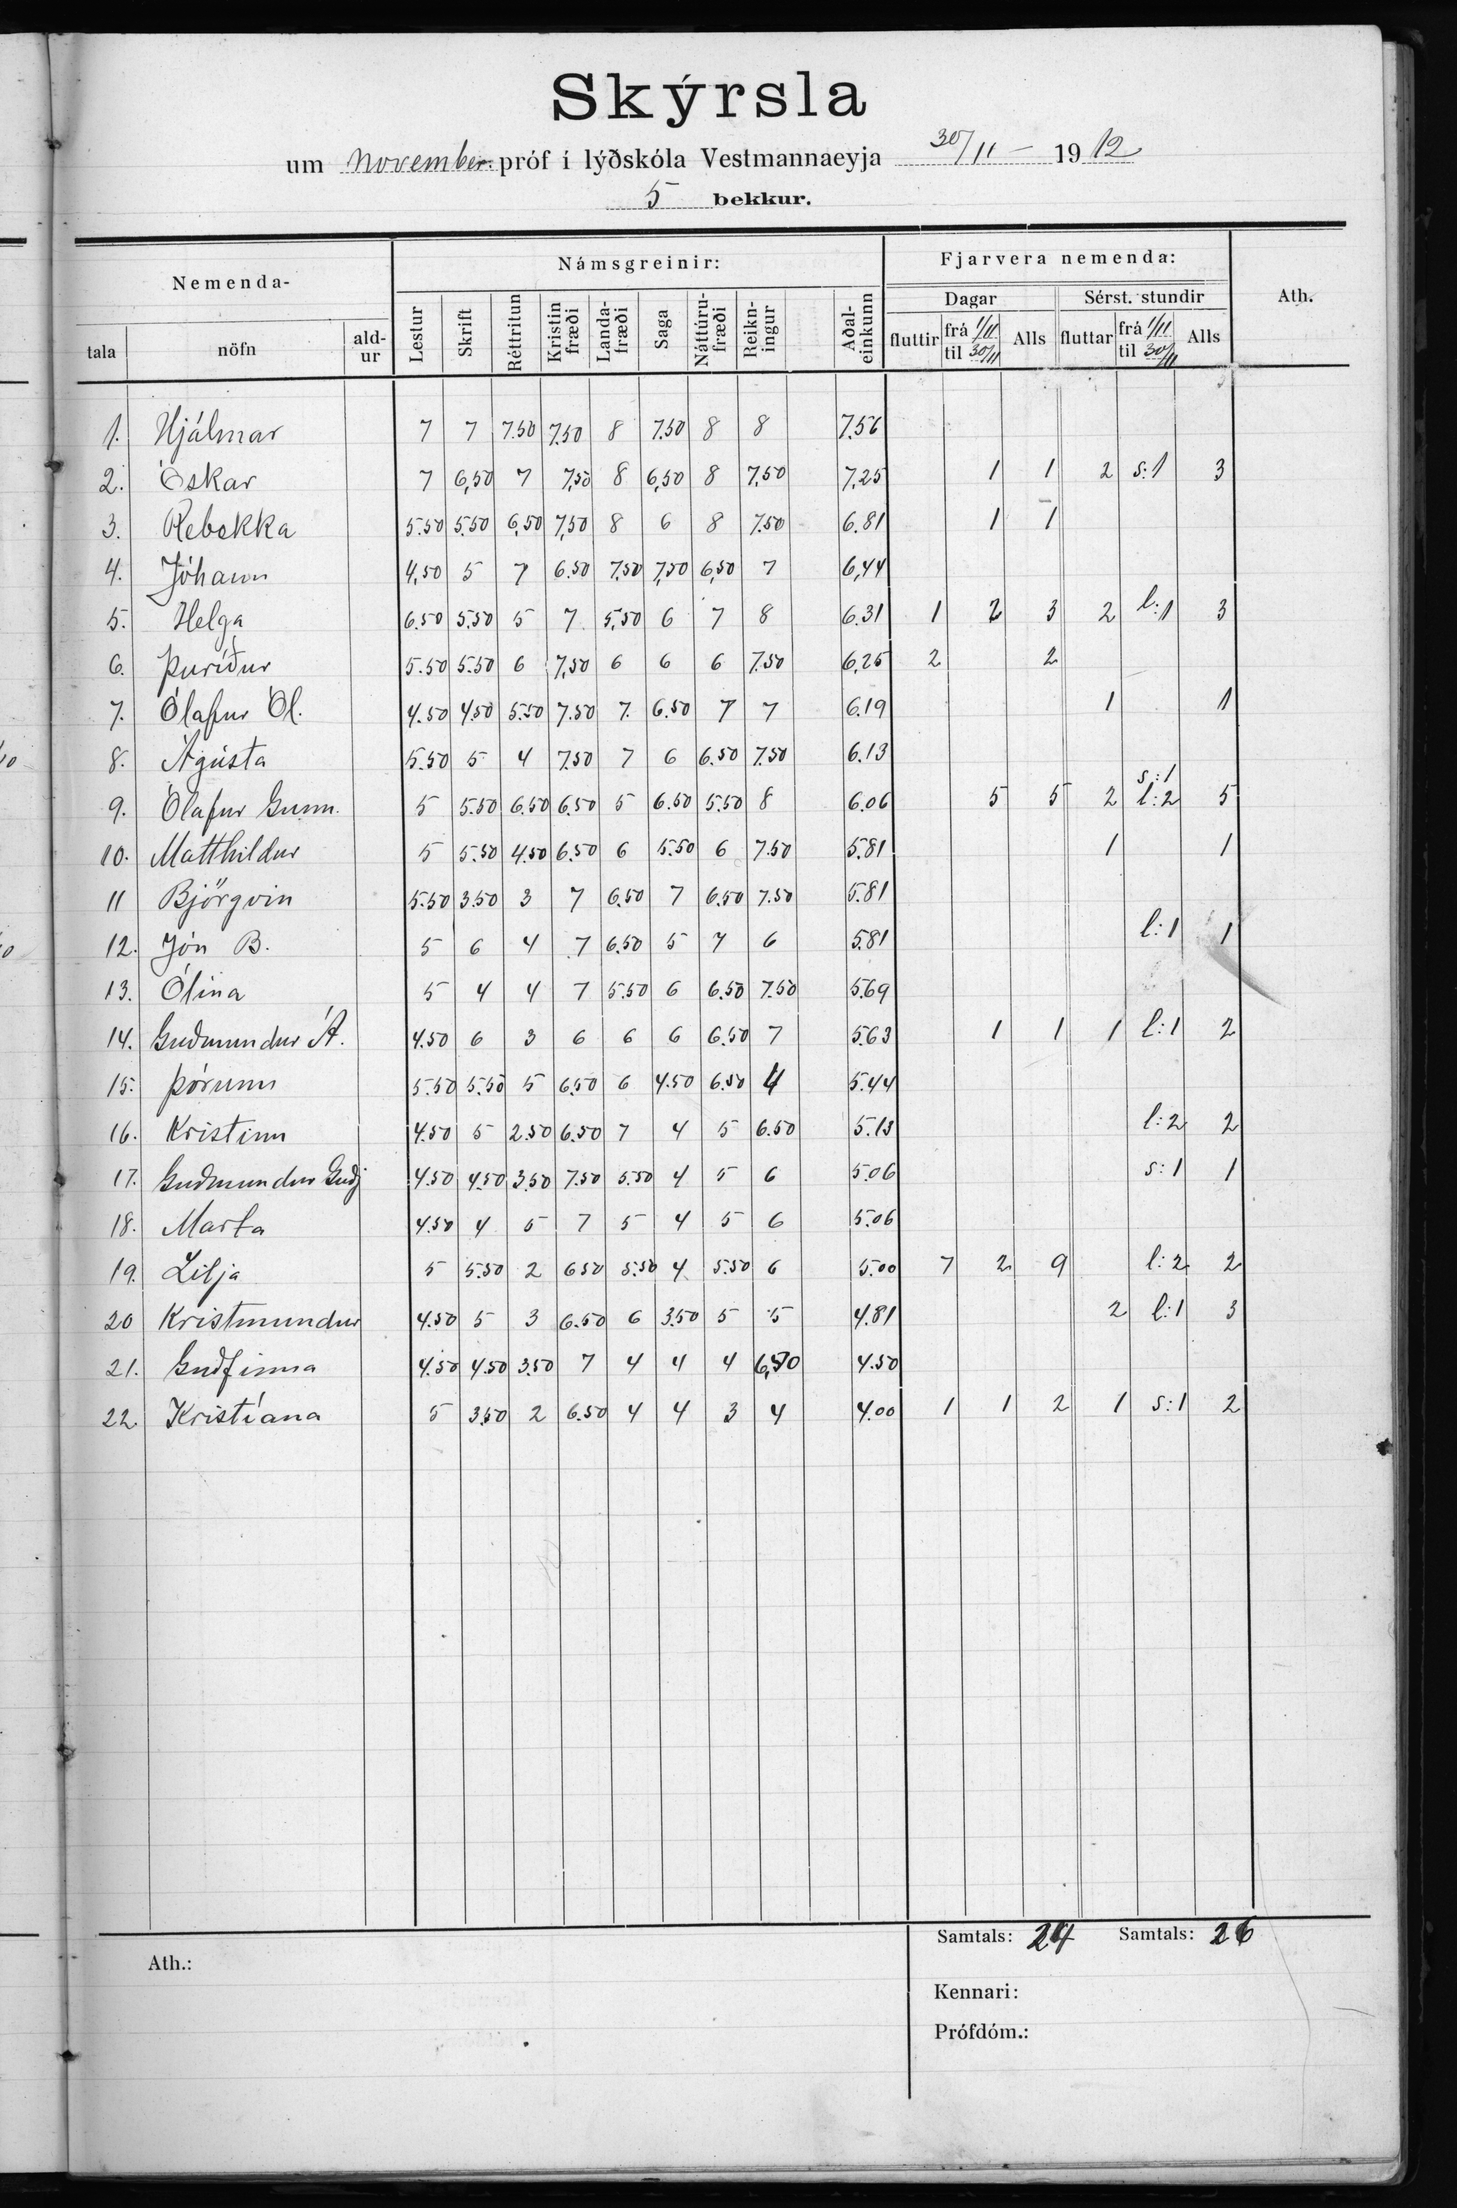 Skýrsla
um november próf í lýðskóla Vestmannaeyja 30/11 – 1912
5 bekkur.
Nemenda- Námsgreinir: Fjarvera nemenda: Ath.
Dagar Sérst. stundir
tala nöfn ald-ur Lestur Skrift Réttritun Kristin fræði Landa-fræði Saga Náttúru-fræði Reikn-ingur Aðal-einkunn fluttir frá 1/11 til 30/11 Alls fluttar frá 1/11 til 30/11 Alls
1. Hjálmar 7 7 7.50 7.50 8 7.50 8 8 7.56
2. Óskar 7 6,50 7 7,50 8 6,50 8 7,50 7,25 1 1 2 s:1 3
3. Rebekka 5.50 5.50 6,50 7,50 8 6 8 7.50 6.81 1 1
4. Jóhann 4,50 5 7 6.50 7,50 7,50 6,50 7 6,44
5. Helga 6.50 5.50 5 7 5,50 6 7 8 6.31 1 2 3 2 l:1 3
6. Þuríður 5.50 5.50 6 7,50 6 6 6 7.50 6,25 2 2
7. Ólafur Ól. 4.50 4.50 5.50 7.50 7. 6.50 7 7 6.19 1 1
8. Ágústa 5.50 5 4 7.50 7 6 6.50 7.50 6.13
9. Ólafur Gunn. 5 5.50 6.50 6.50 5 6.50 5.50 8 6.06 5 5 2 s:1 l:2 5
10. Matthildur 5 5.50 4.50 6.50 6 5.50 6 7.50 5.81 1 1
11 Björgvin 5.50 3.50 3 7 6.50 7 6.50 7.50 5.81
12. Jón B. 5 6 4 7 6.50 5 7 6 5.81 l:1 1
13. Ólína 5 4 4 7 5.50 6 6.50 7.50 5.69
14. Guðmundur Á. 4.50 6 3 6 6 6 6.50 7 5.63 1 1 1 l:1 2
15. Þórunn 5.50 5.50 5 6.50 6 4.50 6.50 4 5.44
16. Kristinn 4.50 5 2.50 6.50 7 4 5 6.50 5.13 l:2 2
17. Guðmundur Guðj 4.50 4.50 3.50 7.50 5.50 4 5 6 5.06 s:1 1
18. Marta 4.50 4 5 7 5 4 5 6 5.06
19. Lilja 5 5.50 2 6.50 5.50 4 5.50 6 5.00 7 2 9 l:2 2
20 Kristmundur 4.50 5 3 6.50 6 3.50 5 5 4.81 2 l:1 3
21. Guðfinna 4.50 4.50 3.50 7 4 4 4 6,50 4.50
22. Kristíana 5 3.50 2 6.50 4 4 3 4 4.00 1 1 2 1 s:1 2
Samtals: 24 Samtals: 26
Ath.:
Kennari:
Prófdóm.: